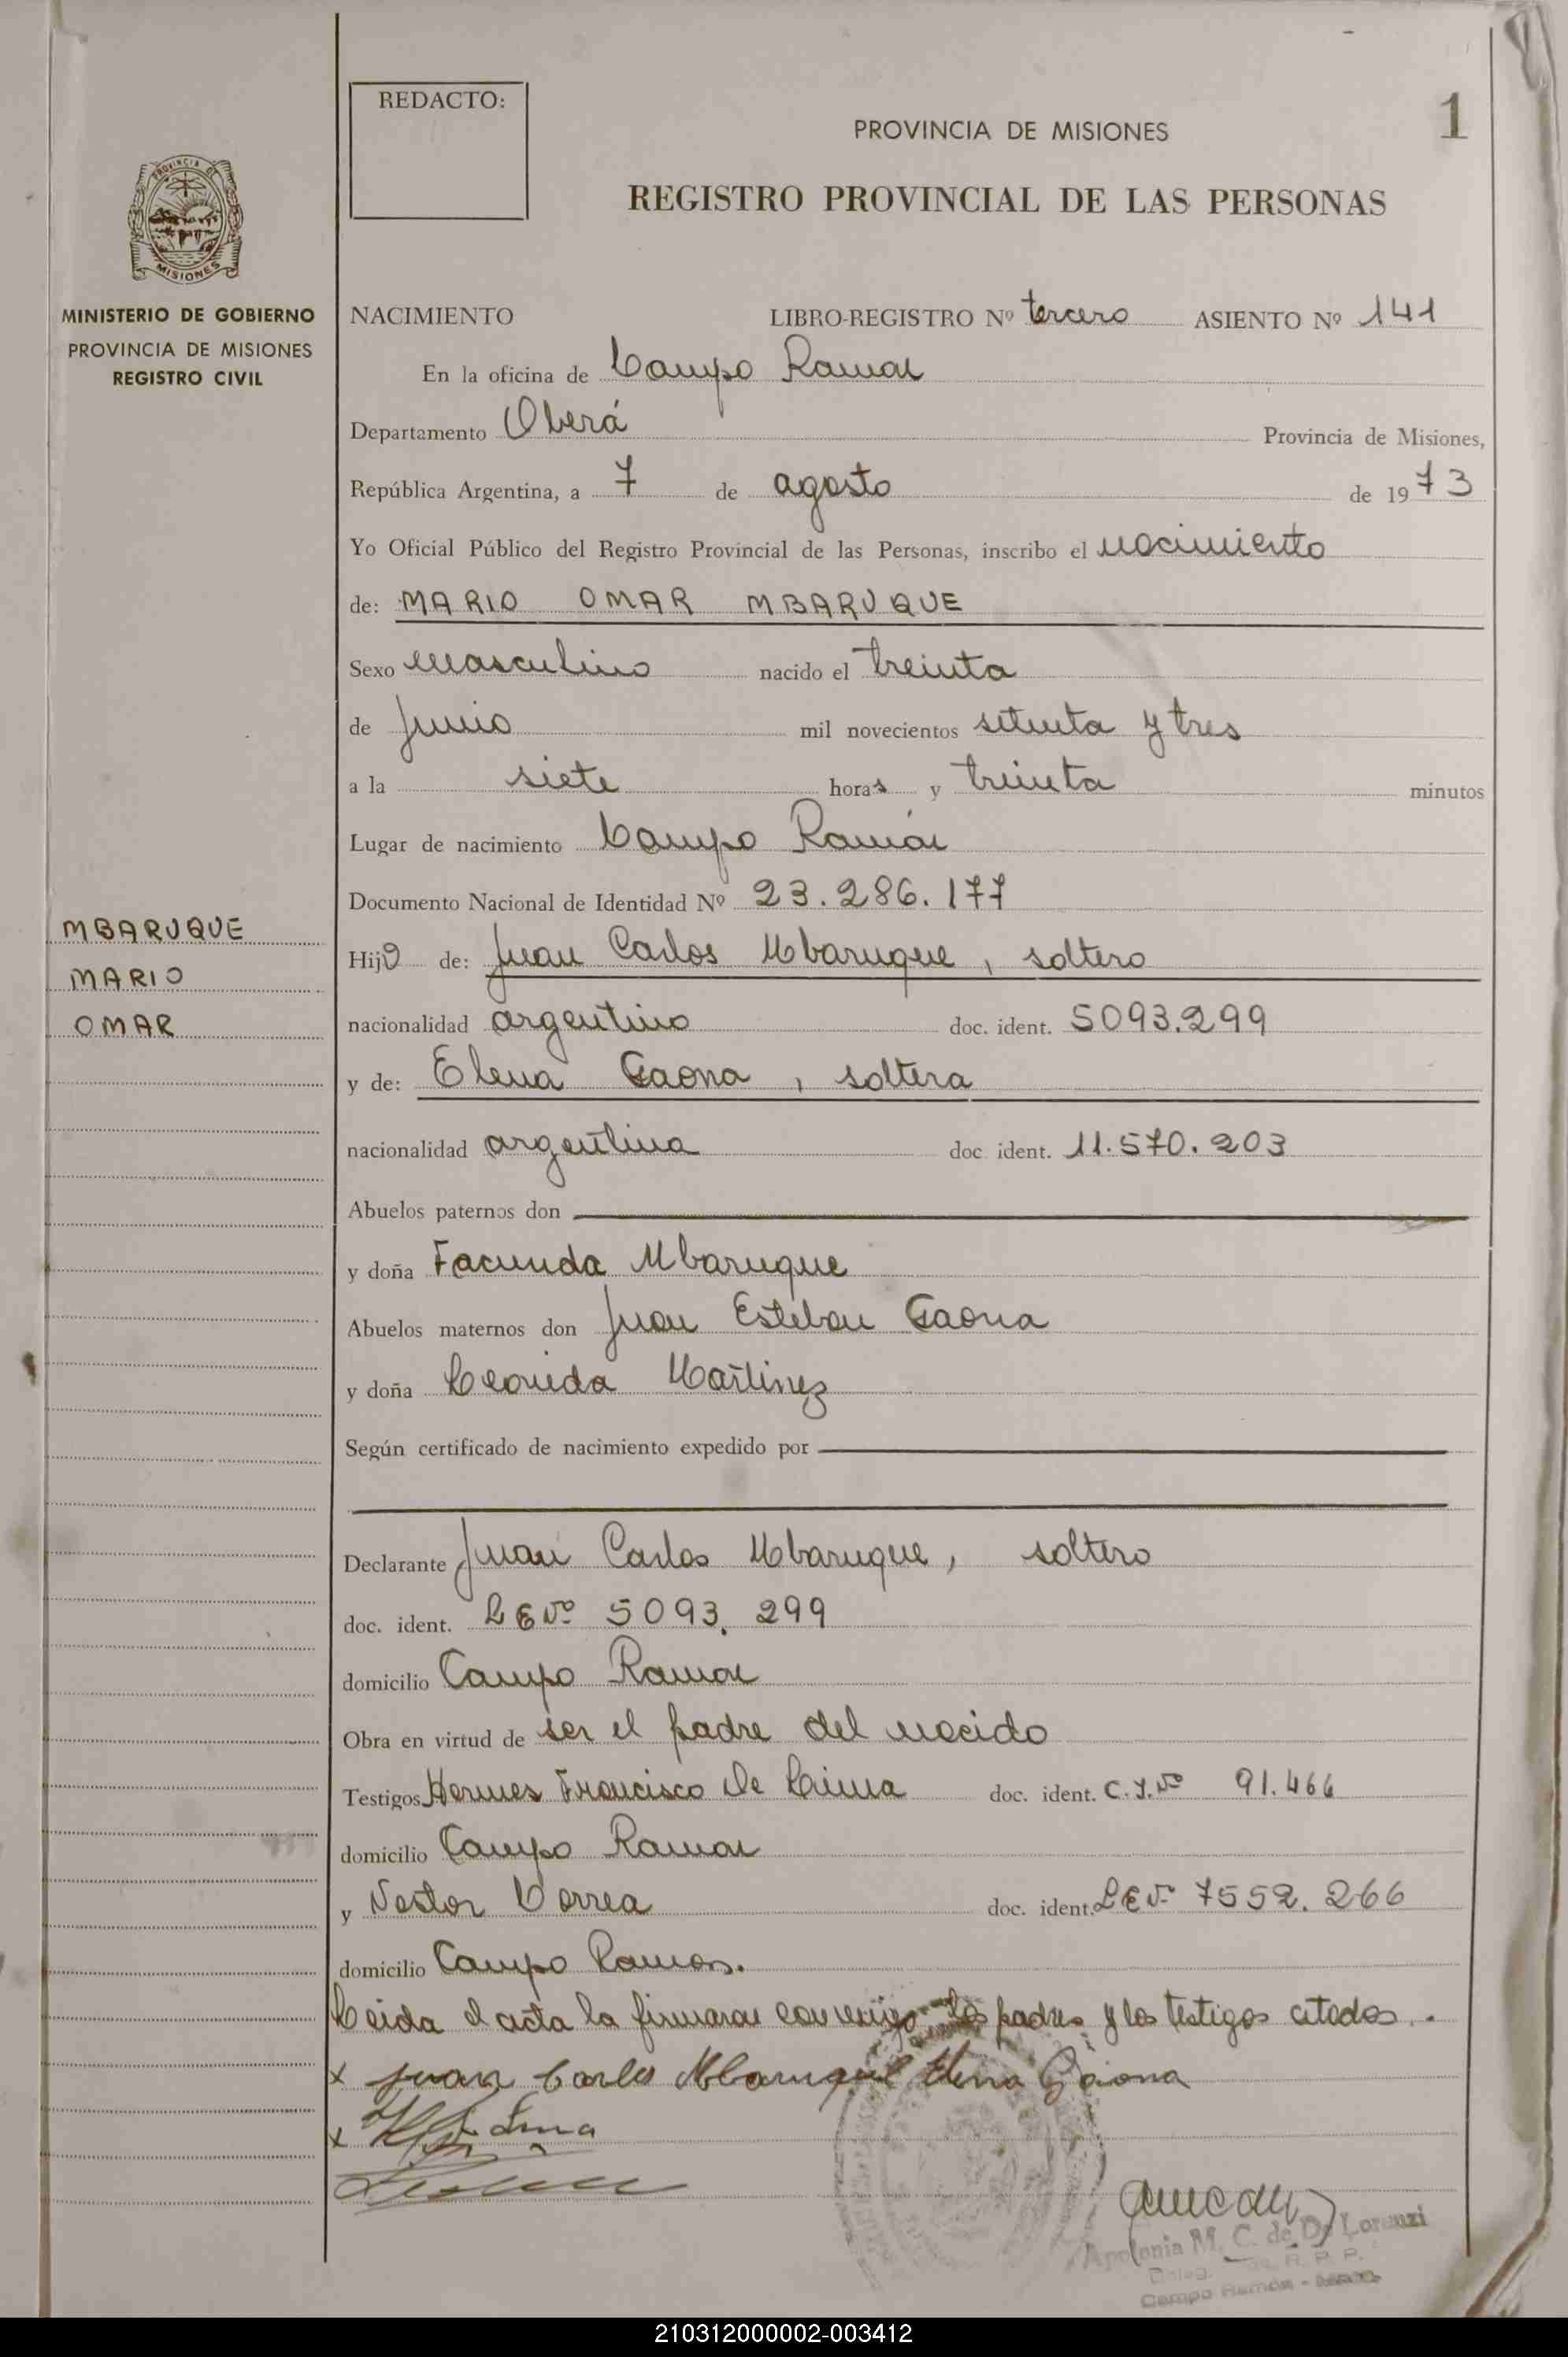 REDACTO:
1
PROVINCIA DE MISIONES
REGISTRO PROVINCIAL DE LAS PERSONAS
PROVINCIA DE
MISIONES
MINISTERIO DE GOBIERNO
PROVINCIA DE MISIONES
REGISTRO CIVIL
NACIMIENTO LIBRO-REGISTRO Nº tercero ASIENTO Nº 141
En la oficina de Campo Ramon
Departamento Oberá Provincia de Misiones,
República Argentina, a 7 de agosto de 1973
Yo Oficial Público del Registro Provincial de las Personas, inscribo el nacimiento
de: MARIO OMAR MBARUQUE
Sexo masculino nacido el treinta
de junio mil novecientos setenta y tres
a la siete horas y treinta minutos
Lugar de nacimiento Campo Ramón
Documento Nacional de Identidad Nº 23.286.177
MBARUQUE
MARIO
OMAR
Hijo de: Juan Carlos Mbaruque, soltero
nacionalidad argentino doc. ident. 5093.299
y de: Elena Gaona, soltera
nacionalidad argentina doc. ident. 11.570.203
Abuelos paternos don
y doña Facunda Mbaruque
Abuelos maternos don Juan Esteban Gaona
y doña Leonida Martinez
Según certificado de nacimiento expedido por
Declarante Juan Carlos Mbaruque, soltero
doc. ident. LE Nº 5093.299
domicilio Campo Ramon
Obra en virtud de ser el padre del nacido
Testigos Hermes Francisco De Lima doc. ident. C.I.Nº 91.466
domicilio Campo Ramon
y Nestor Correa doc. ident. LE Nº 7552.266
domicilio Campo Ramon.
Leida el acta la firmaran conmigo, los padres y los testigos citados.
x Juan Carlos Mbaruque Elena Gaona
x Lima
Apolonia M. C. de De Lorenzi
R. P. P.
Campo Ramón -
210312000002-003412